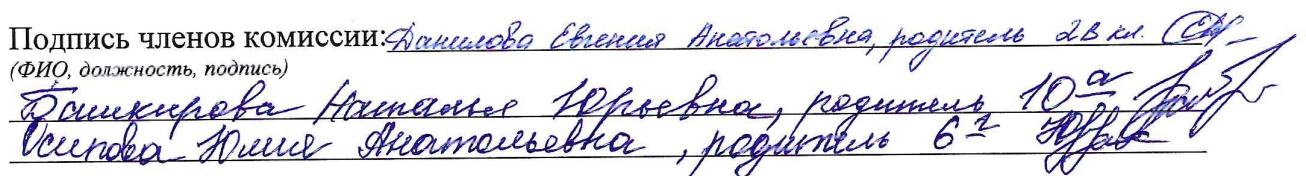 Подпись членов комиссии: Данилова Евгения Анатольевна, родитель 2В кл.
(ФИО, должность, подпись)
Башкирова Наталья Юрьевна, родитель 10а
Осипова Юлия Анатольевна, родитель 6г